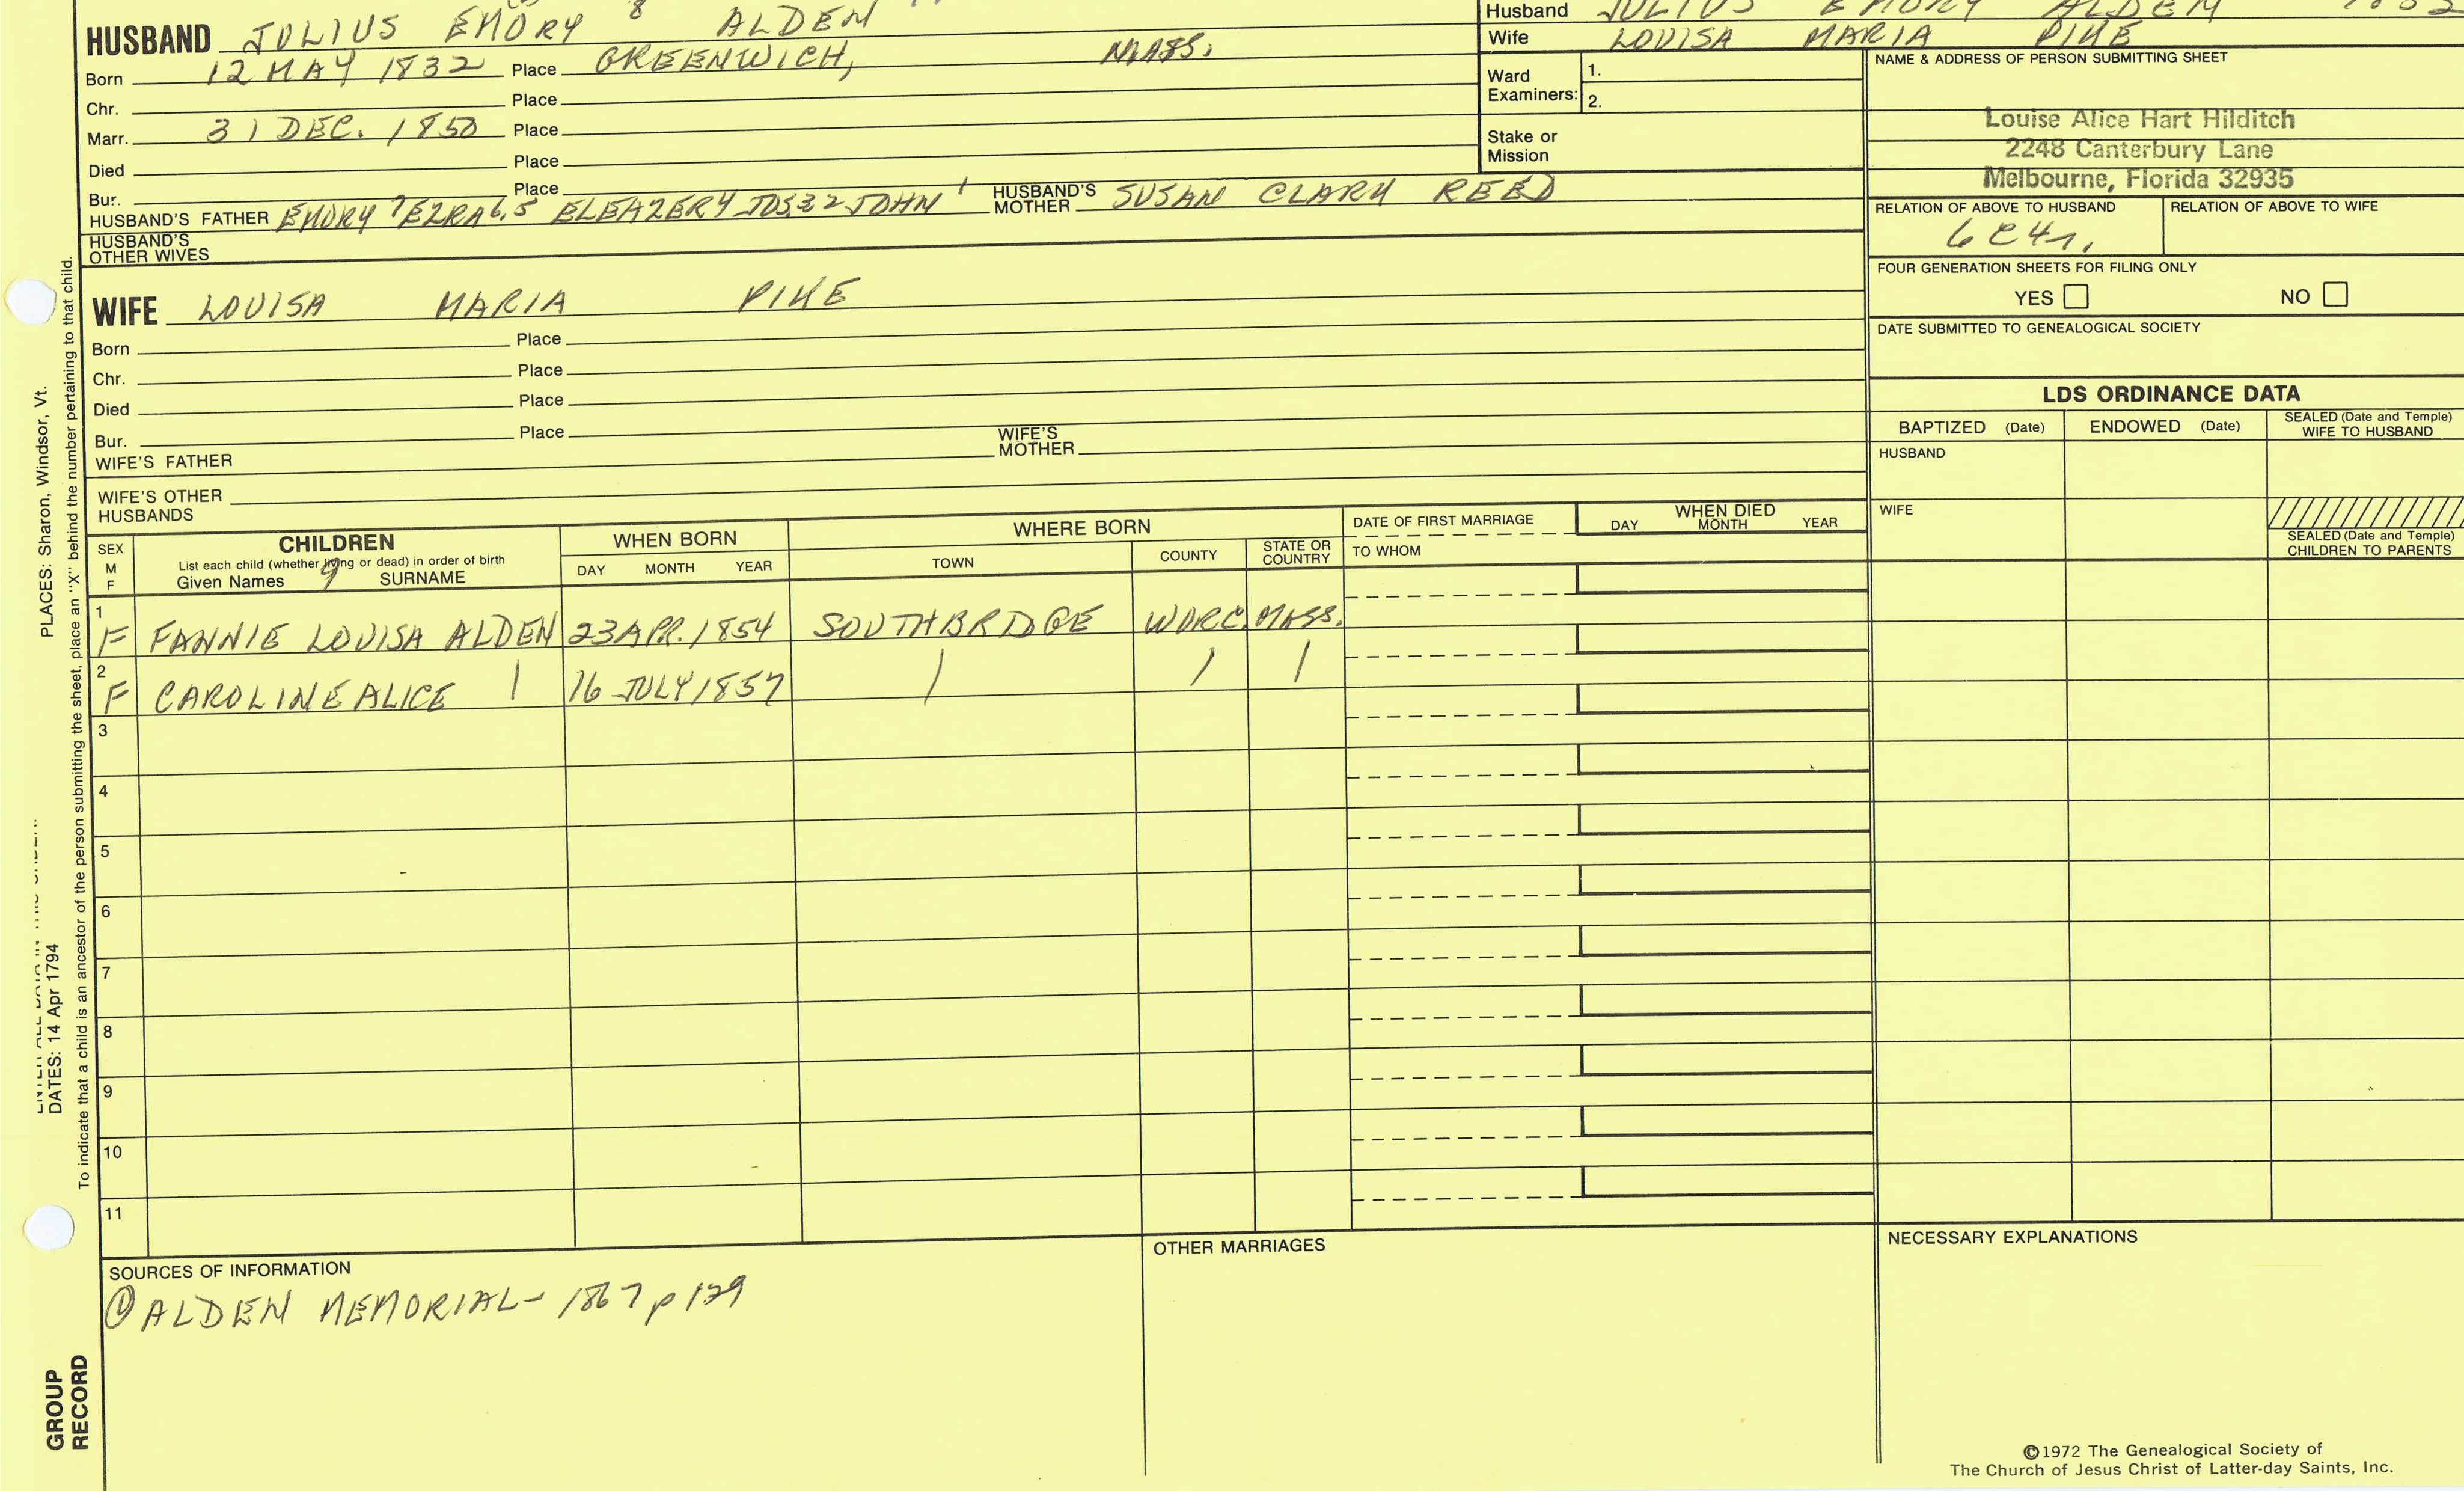 HUSBAND JULIUS EMORY 8 ALDEN
Born 12 MAY 1832 Place GREENWICH, MASS.
Chr. Place
Marr. 31 DEC. 1850 Place
Died Place
Bur. Place
HUSBAND'S FATHER EMORY 7 EZRA 6,5 ELEAZER 4 JOS 3 2 JOHN 1 HUSBAND'S MOTHER SUSAN CLARK REED
HUSBAND'S OTHER WIVES
WIFE LOUISA MARIA PIKE
Born Place
Chr. Place
Died Place
Bur. Place
WIFE'S FATHER WIFE'S MOTHER
WIFE'S OTHER HUSBANDS
Husband JULIUS EMORY ALDEN
Wife LOUISA MARIA PIKE
Ward Examiners: 1.
2.
Stake or Mission
NAME & ADDRESS OF PERSON SUBMITTING SHEET
Louise Alice Hart Hilditch
2248 Canterbury Lane
Melbourne, Florida 32935
RELATION OF ABOVE TO HUSBAND RELATION OF ABOVE TO WIFE
6C4r.
FOUR GENERATION SHEETS FOR FILING ONLY
YES NO
DATE SUBMITTED TO GENEALOGICAL SOCIETY
LDS ORDINANCE DATA
BAPTIZED (Date) ENDOWED (Date) SEALED (Date and Temple) WIFE TO HUSBAND
HUSBAND
WIFE
SEALED (Date and Temple) CHILDREN TO PARENTS
SEX M F
CHILDREN
List each child (whether living or dead) in order of birth
Given Names 9 SURNAME
WHEN BORN
DAY MONTH YEAR
WHERE BORN
TOWN COUNTY STATE OR COUNTRY
DATE OF FIRST MARRIAGE
TO WHOM
WHEN DIED
DAY MONTH YEAR
1 F FANNIE LOUISA ALDEN 23 APR. 1854 SOUTHBRIDGE WORC. MASS.
2 F CAROLINE ALICE | 16 JULY 1857 | | |
3
4
5
6
7
8
9
10
11
SOURCES OF INFORMATION
① ALDEN MEMORIAL - 1867 p 129
OTHER MARRIAGES
NECESSARY EXPLANATIONS
©1972 The Genealogical Society of
The Church of Jesus Christ of Latter-day Saints, Inc.
DATES: 14 Apr 1794
PLACES: Sharon, Windsor, Vt.
To indicate that a child is an ancestor of the person submitting the sheet, place an "X" behind the number pertaining to that child.
GROUP
RECORD